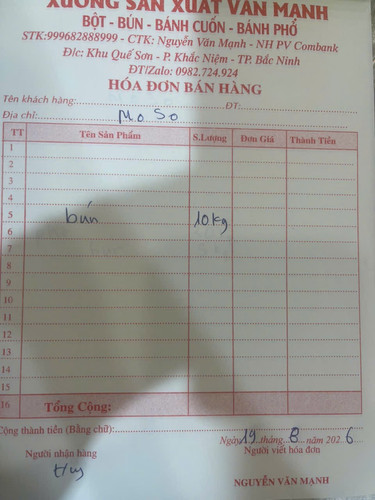 XƯỞNG SẢN XUẤT VĂN MẠNH
BỘT - BÚN - BÁNH CUỐN - BÁNH PHỞ
STK:999682888999 - CTK: Nguyễn Văn Mạnh - NH PV Combank
Đ/c: Khu Quế Sơn - P. Khắc Niệm - TP. Bắc Ninh
ĐT/Zalo: 0982.724.924
HÓA ĐƠN BÁN HÀNG
Tên khách hàng: ĐT:
Địa chỉ: Mo So
TT Tên Sản Phẩm S.Lượng Đơn Giá Thành Tiền
1
2
3
4
5 bún 10kg
6
7
8
9
10
11
12
13
14
15
16 Tổng Cộng:
Cộng thành tiền (Bằng chữ):
Ngày 19 tháng 8 năm 2026
Người nhận hàng Người viết hóa đơn
NGUYỄN VĂN MẠNH